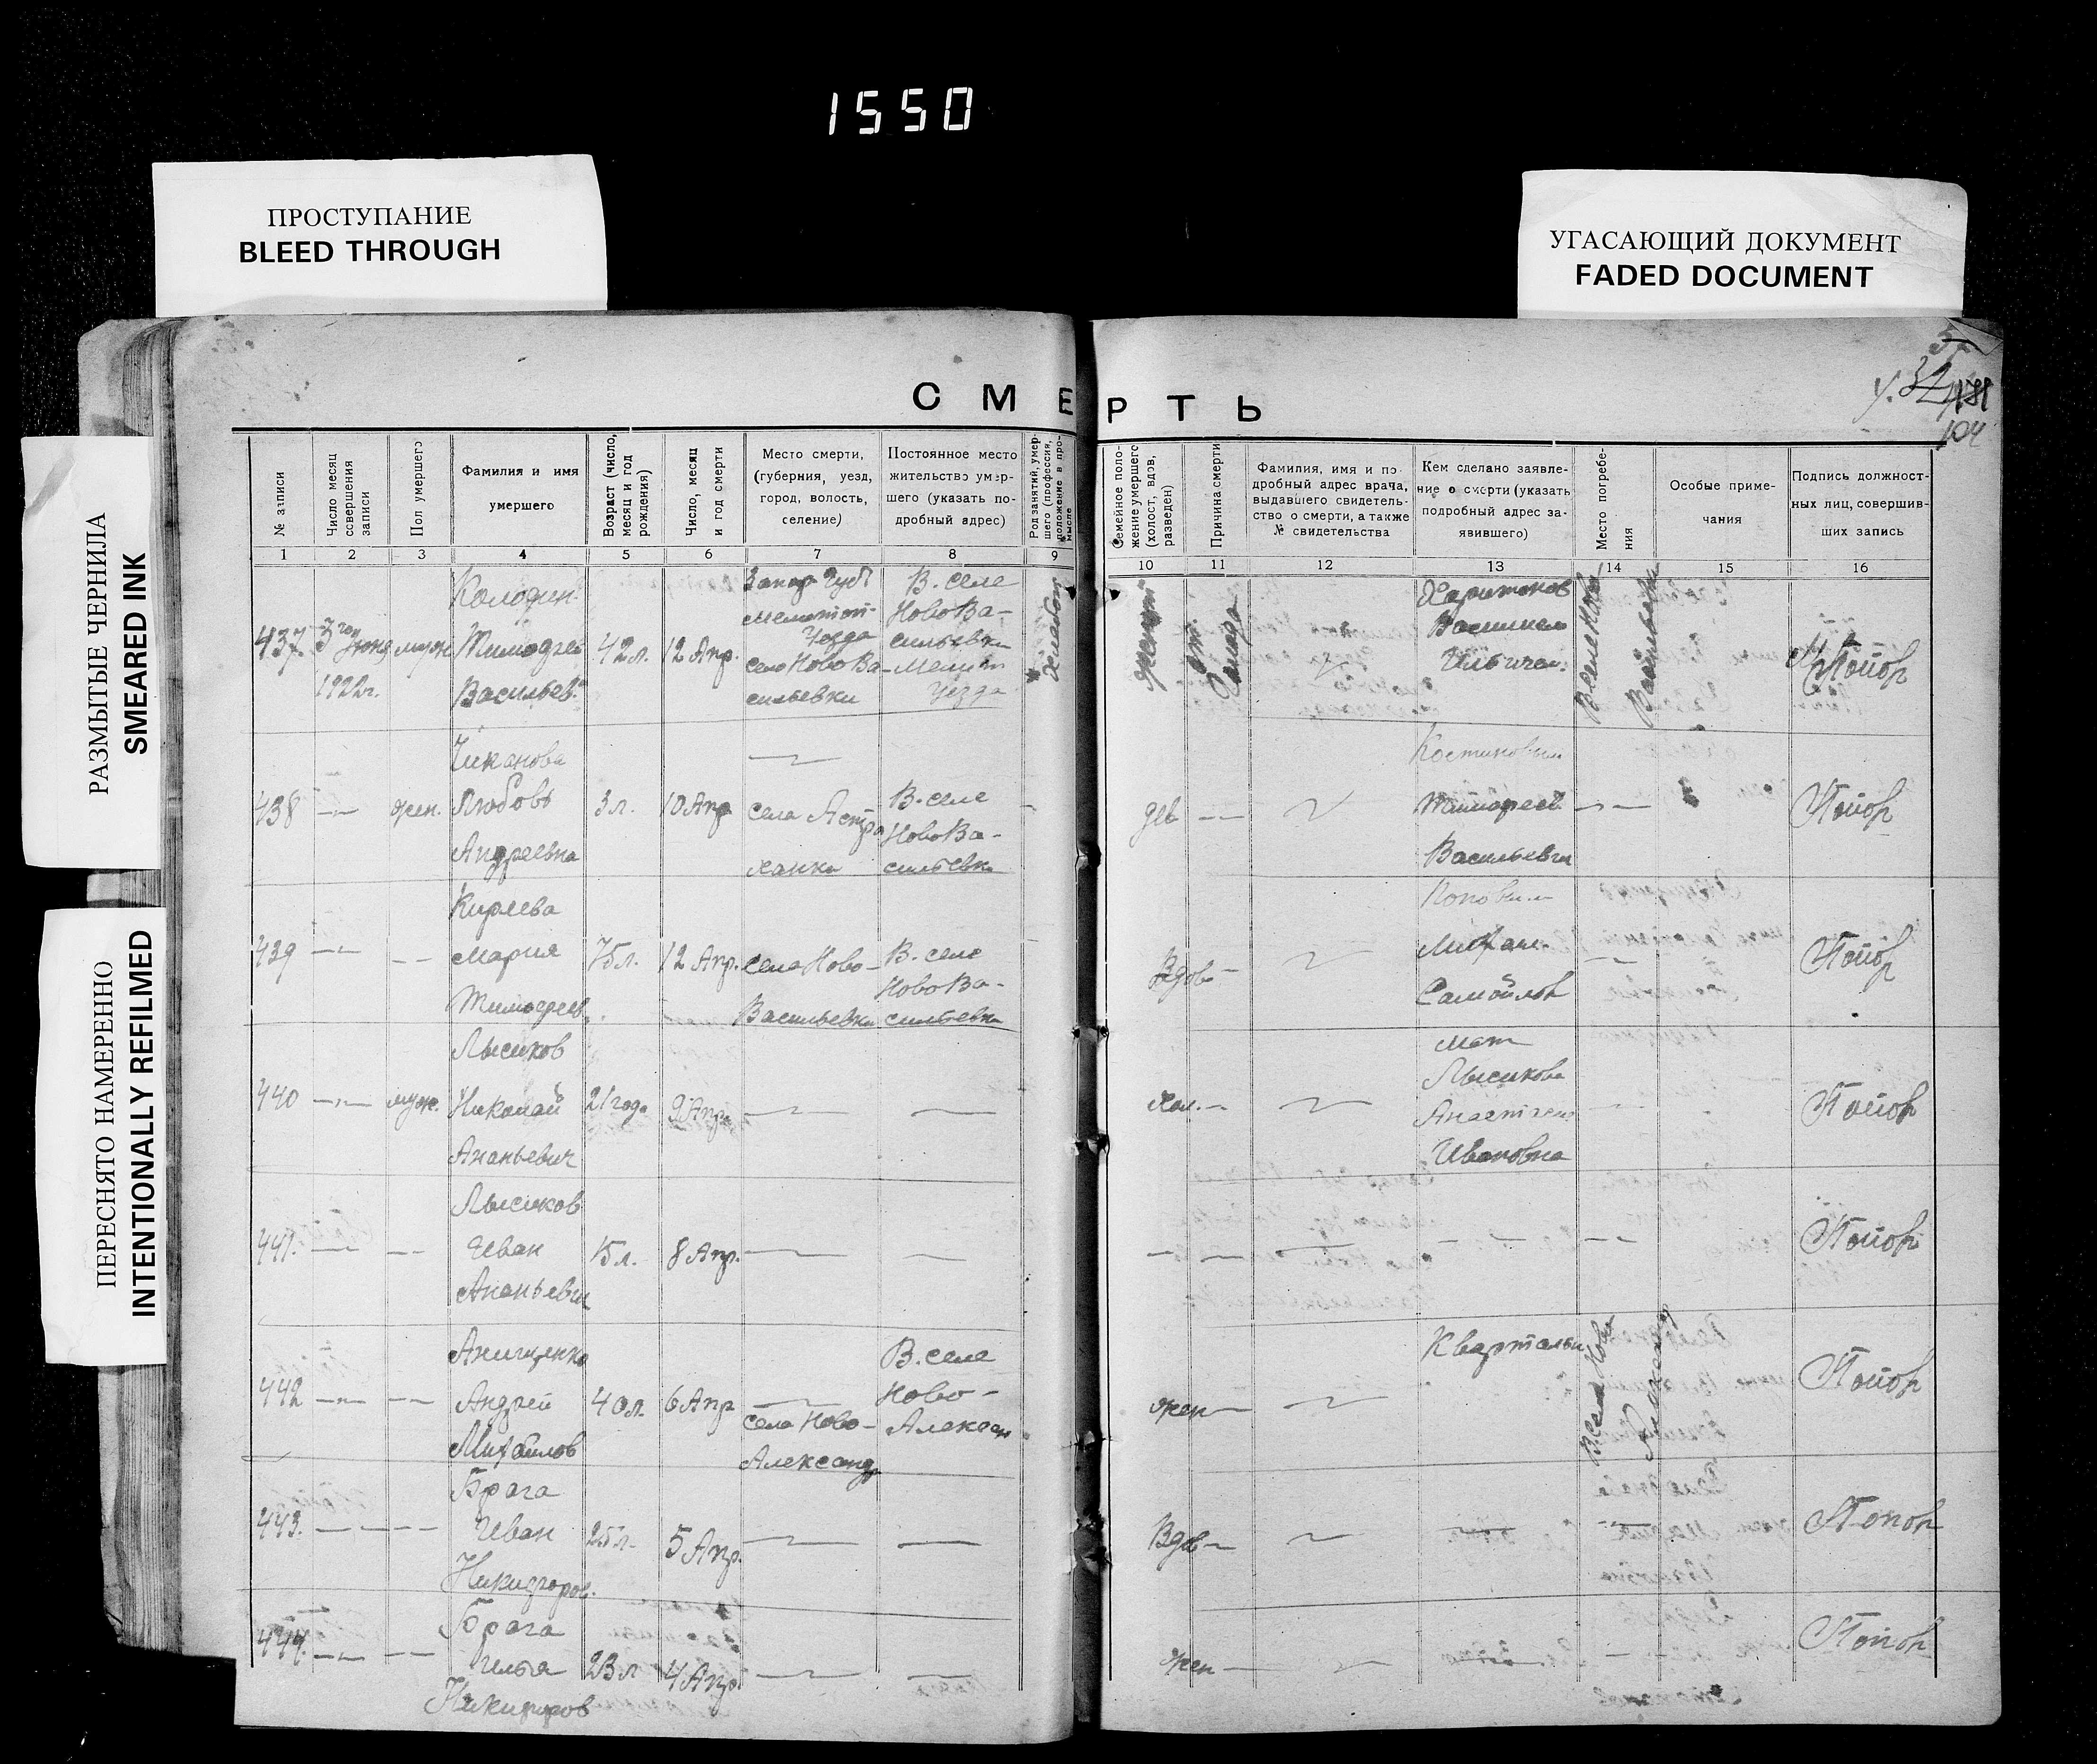 1550
ПРОСТУПАНИЕ
BLEED THROUGH
УГАСАЮЩИЙ ДОКУМЕНТ
FADED DOCUMENT
РАЗМЫТЫЕ ЧЕРНИЛА
SMEARED INK
ПЕРЕСНЯТО НАМЕРЕННО
INTENTIONALLY REFILMED
СМЕРТЬ
104
№ записи
Число месяц
совершения
записи
Пол умершего
Фамилия и имя
умершего
Возраст (число,
месяц и год
рождения)
Число, месяц
и год смерти
Место смерти,
(губерния, уезд,
город, волость,
селение)
Постоянное место
жительство умер-
шего (указать по-
дробный адрес)
Род занятий, умер-
шего (профессия,
положение в про-
мысле
Семейное поло-
жение умершего
(холост, вдов,
разведен)
Причина смерти
Фамилия, имя и по
дробный адрес врача,
выдавшего свидетель-
ство о смерти, а также
№ свидетельства
Кем сделано заявле-
ние о смерти (указать
подробный адрес за-
явившего)
Место погребе-
ния
Особые приме-
чания
Подпись должност-
ных лиц, совершив-
ших запись
1 2 3 4 5 6 7 8 9 10 11 12 13 14 15 16
437.
3го Июня
1922г.
муж
Тимофей
Васильев.
42л.
12 Апр.
Запор Губ
Мелитоп-
Уезда
село НовоВа-
сильевки
В. селе
НовоВа-
сильевки
Мелит
Уезда
женат
от
Голода
Харитонов
Васильем
Ильичем.
438
жен.
Чиканова
Любовь
Андреевна
3л.
10 Апр
села Астра
ханки
В. селе
НовоВа-
сильевки
дев
Костиковым
Тимофеем
Васильевич
439
Киреева
Мария
Тимофеев.
75л.
12 Апр.
села Ново-
Васильевки
В. селе
НовоВа-
сильевки
Вдов
Поповым
Михаил
Самойлов
440
муж.
Лысиков
Николай
Ананьевич
21 года
9 Апр.
хол.
мат
Лысикова
Ивановна
441.
Лысиков
Иван
Ананьевич
15л.
8 Апр.
442
Андрей
Михайлов
40л.
6 Апр
села Ново-
Александр
В. селе
Ново-
Алексан
жен
Квартальн
443.
Брага
Иван
Никифоров.
25л.
5 Апр.
Вдов
444.
Брага
Илья
Никифоров
23л
4 Апр.
жен